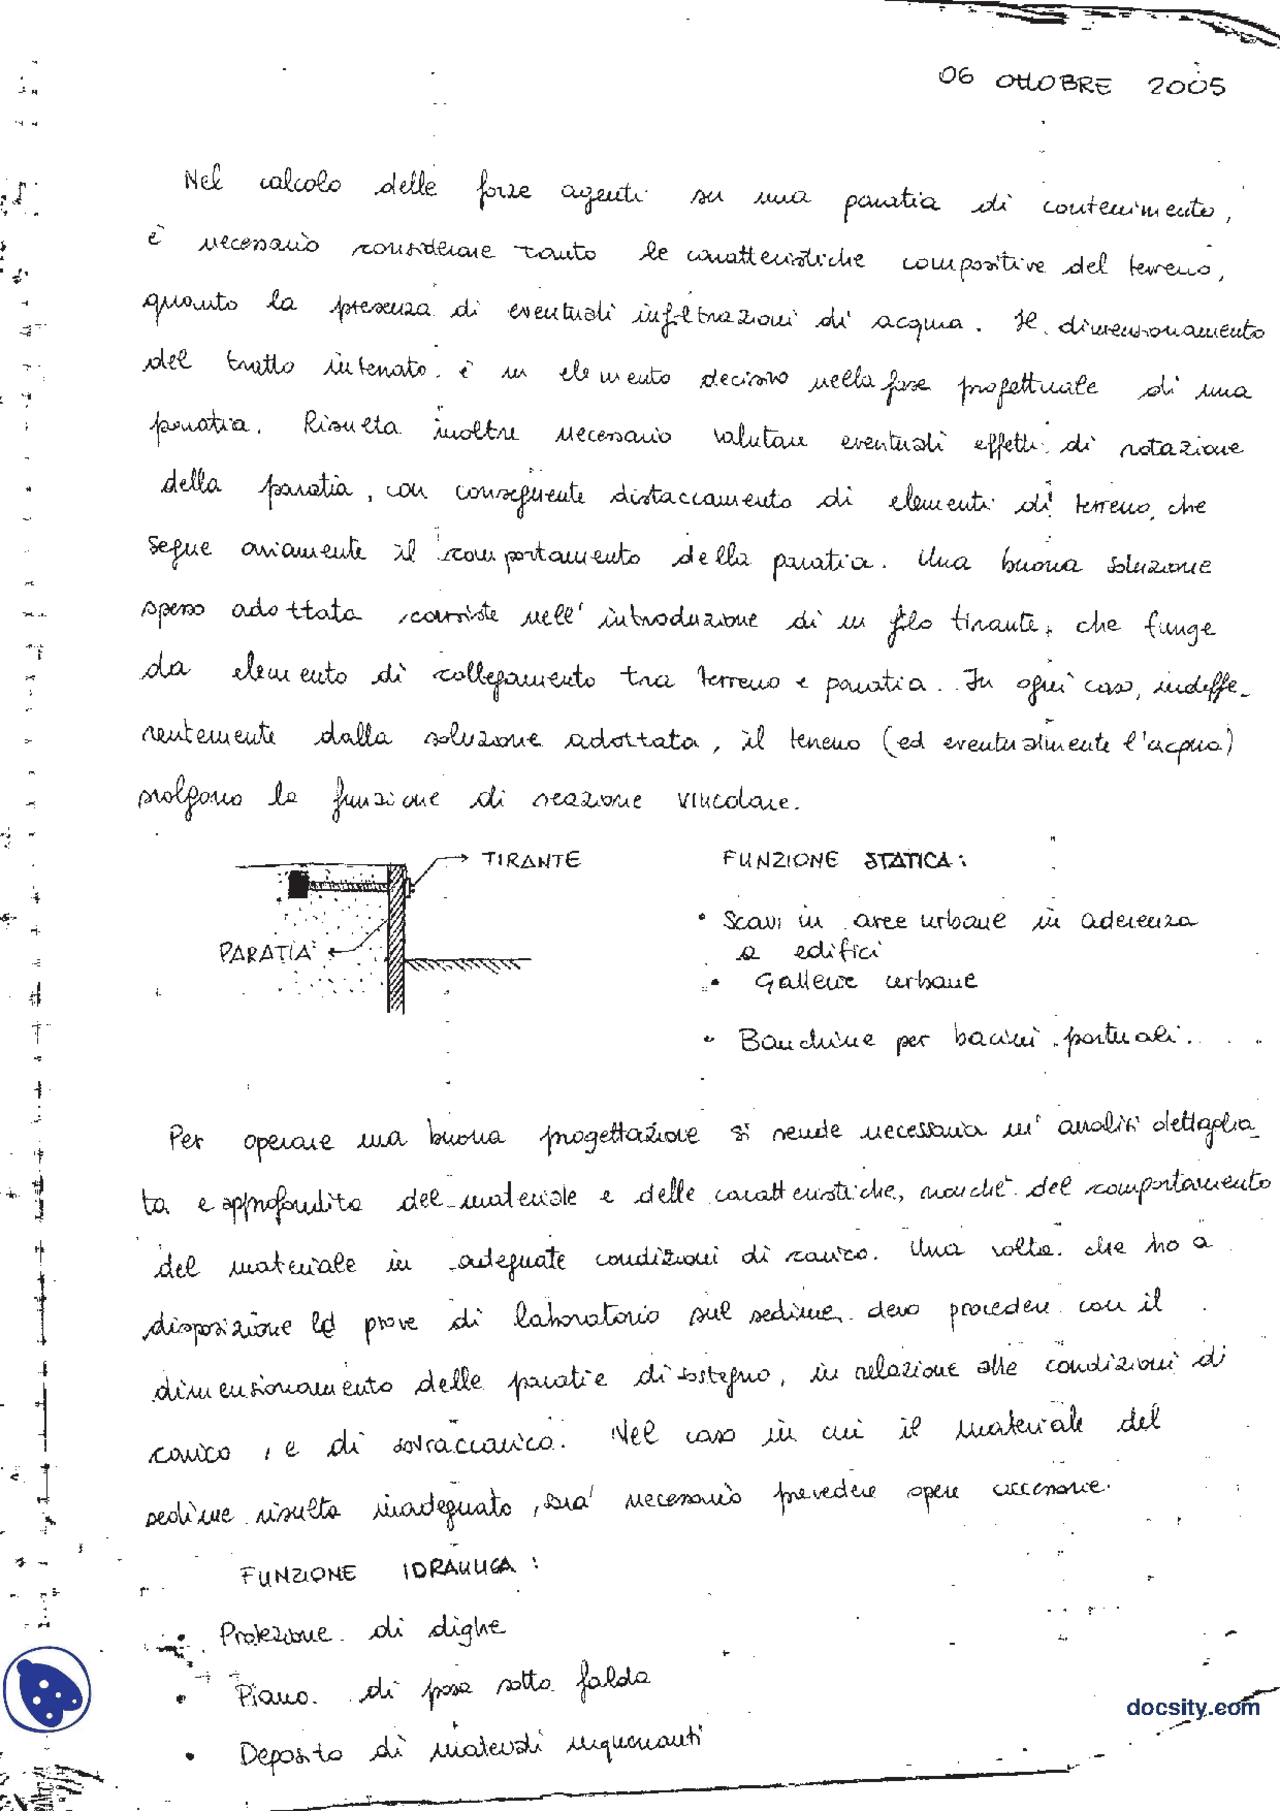 06 OTTOBRE 2005
Nel calcolo delle forze agenti su una paratia di contenimento,
è necessario considerare tanto le caratteristiche compositive del terreno,
quanto la presenza di eventuali infiltrazioni di acqua. Il dimensionamento
del tratto interrato è un elemento decisivo nella fase progettuale di una
paratia. Risulta inoltre necessario valutare eventuali effetti di rotazione
della paratia, con conseguente distaccamento di elementi di terreno, che
segue ovviamente il comportamento della paratia. Una buona soluzione
spesso adottata consiste nell'introduzione di un filo tirante, che funge
da elemento di collegamento tra terreno e paratia. In ogni caso, indiffe-
rentemente dalla soluzione adottata, il terreno (ed eventualmente l'acqua)
svolgono la funzione di reazione vincolare.
TIRANTE
PARATIA
FUNZIONE STATICA:
• Scavi in aree urbane in aderenza
a edifici
• Gallerie urbane
• Banchine per bacini portuali.
Per operare una buona progettazione si rende necessaria un'analisi dettaglia-
ta e approfondita del materiale e delle caratteristiche, nonché del comportamento
del materiale in adeguate condizioni di carico. Una volta che ho a
disposizione le prove di laboratorio sul sedime, devo procedere con il
dimensionamento delle paratie di sostegno, in relazione alle condizioni di
carico, e di sovraccarico. Nel caso in cui il materiale del
sedime risulta inadeguato, sarà necessario prevedere opere accessorie.
FUNZIONE IDRAULICA:
• Protezione di dighe
• Piano di posa sotto falda
• Deposito di materiali inquinanti
docsity.com